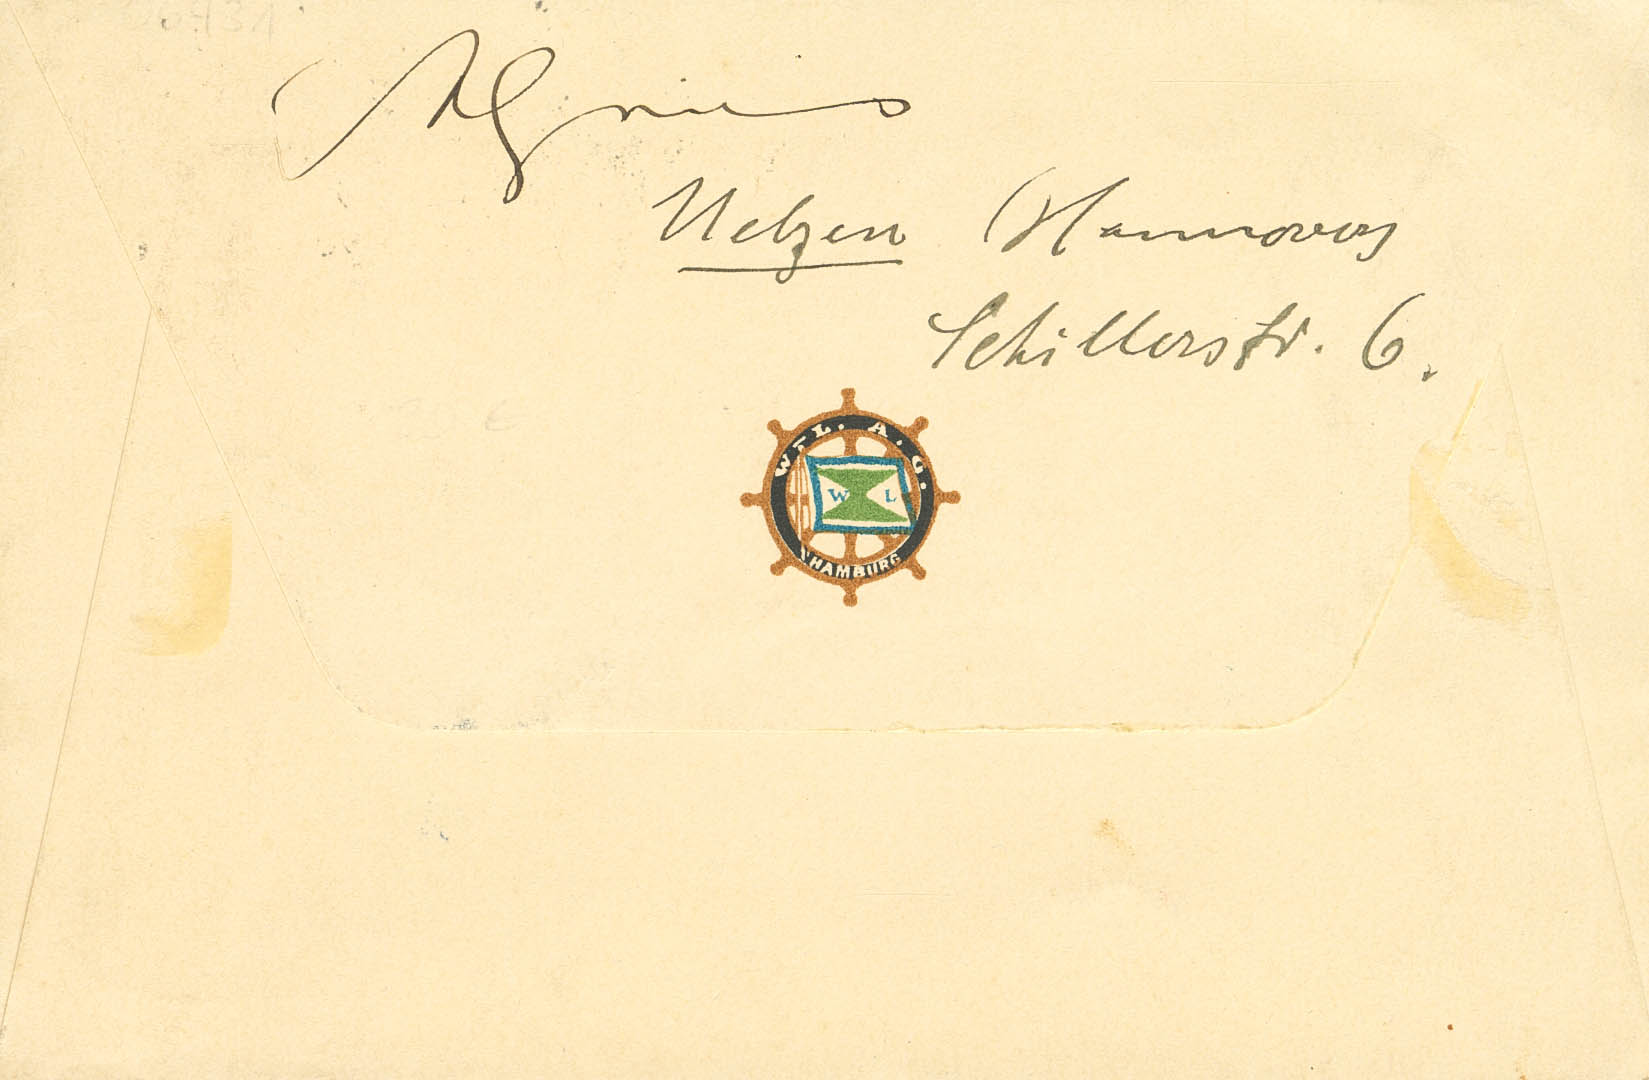 Uelzen (Hannover)
Schillerstr. 6.
W.-L. A. G.
W L
HAMBURG